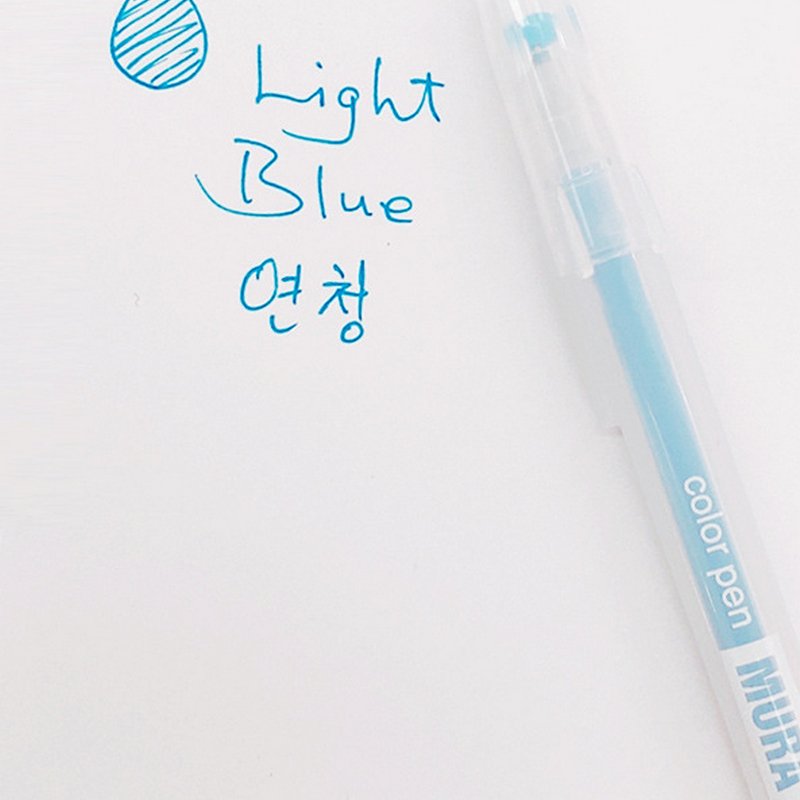 Light
Blue
연청
color pen
MURA